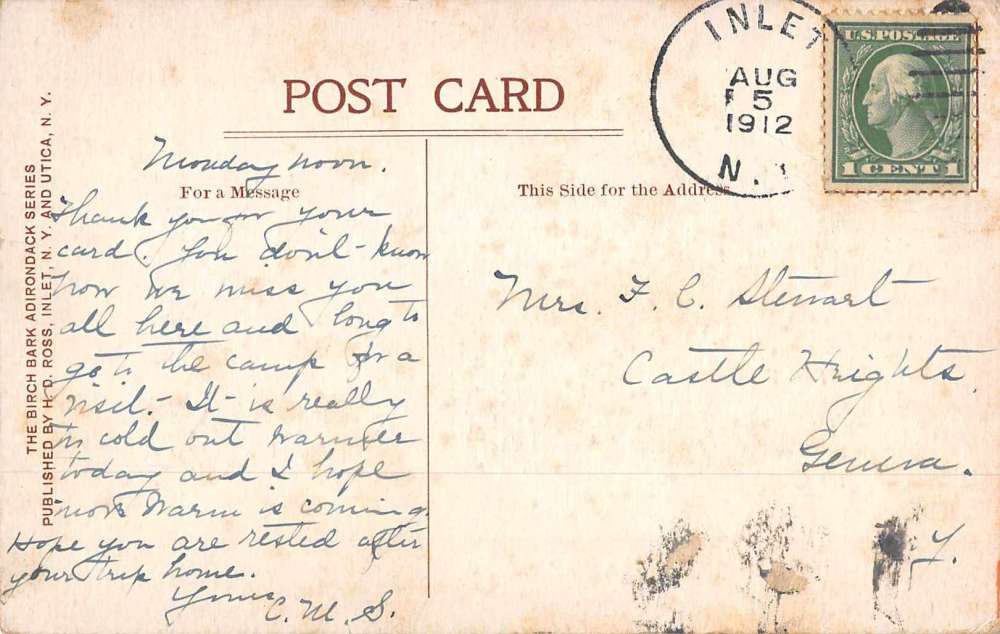 INLET
AUG
5
1912
N.
U.S. POSTAGE
1 CENT 1
POST CARD
THE BIRCH BARK ADIRONDACK SERIES
PUBLISHED BY H. D. ROSS, INLET, N. Y. AND UTICA, N. Y.
For a Message
This Side for the Address
Monday noon.
Thank you for your
card. You don't know
how we miss you
all here and long to
go to the camp for a
visit. It is really
too cold but warmer
today and I hope
more warm is coming.
Hope you are rested after
your trip home.
Yours
C. M. S.
Mrs. F. C. Stewart
Castle Heights,
Geneva.
Y.